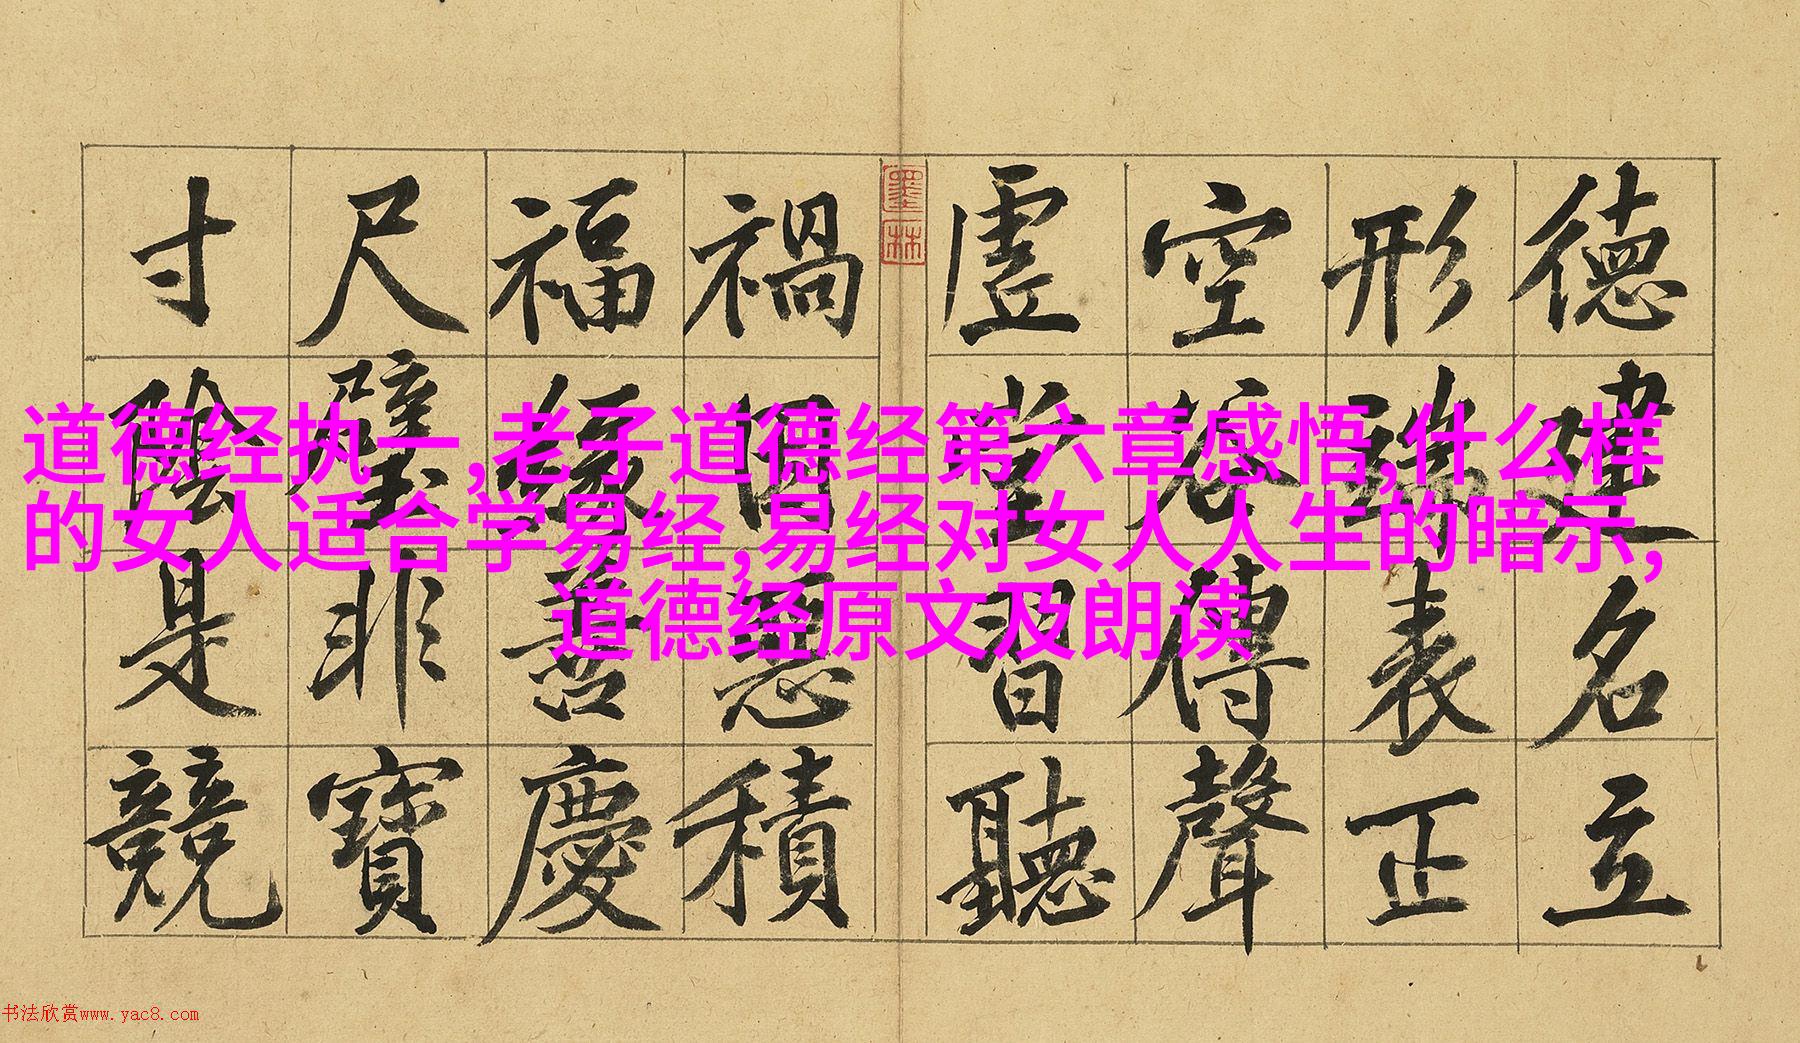 德建名立
形端表正
空谷傳聲
虛堂習聽
禍因惡積
福緣善慶
尺璧非寶
寸陰是競
墨林
道德经执一,老子道德经第六章感悟,什么样
的女人适合学易经,易经对女人人生的暗示,
道德经原文及朗读
书法欣赏www.yac8.com